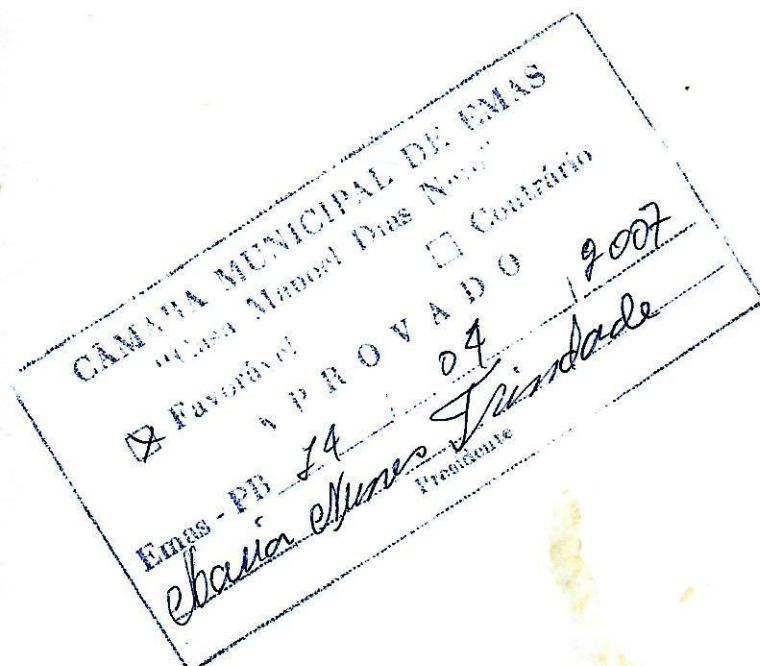 CÂMARA MUNICIPAL DE EMAS
"Casa Manoel Dias
☒ Favorável ☐ Contrário
APROVADO
Emas - PB 14 / 04 / 2007
Maria Nunes Trindade
Presidente